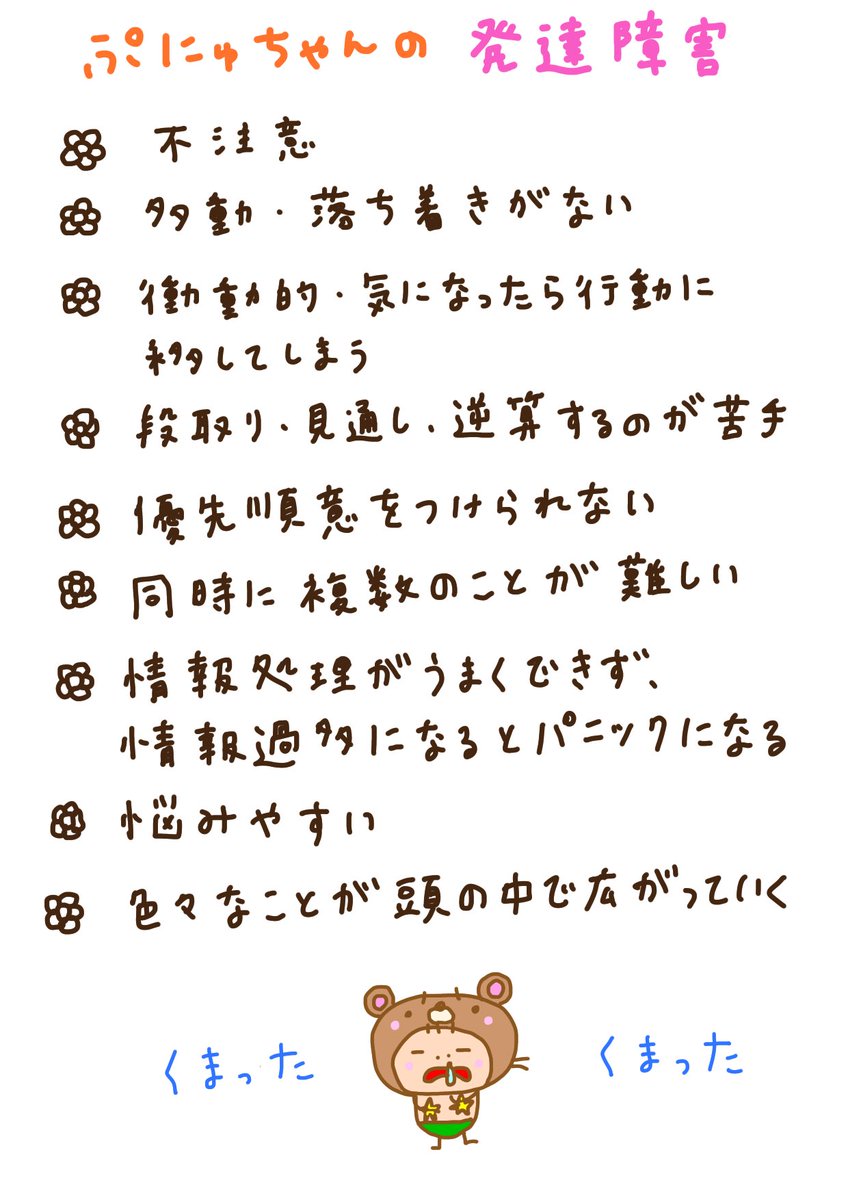 ぷにゅちゃんの 発達障害
不注意
多動・落ち着きがない
衝動的・気になったら行動に
移してしまう
段取り、見通し、逆算するのが苦手
優先順意をつけられない
同時に複数のことが難しい
情報処理がうまくできず、
情報過多になるとパニックになる
悩みやすい
色々なことが頭の中で広がっていく
くまった くまった